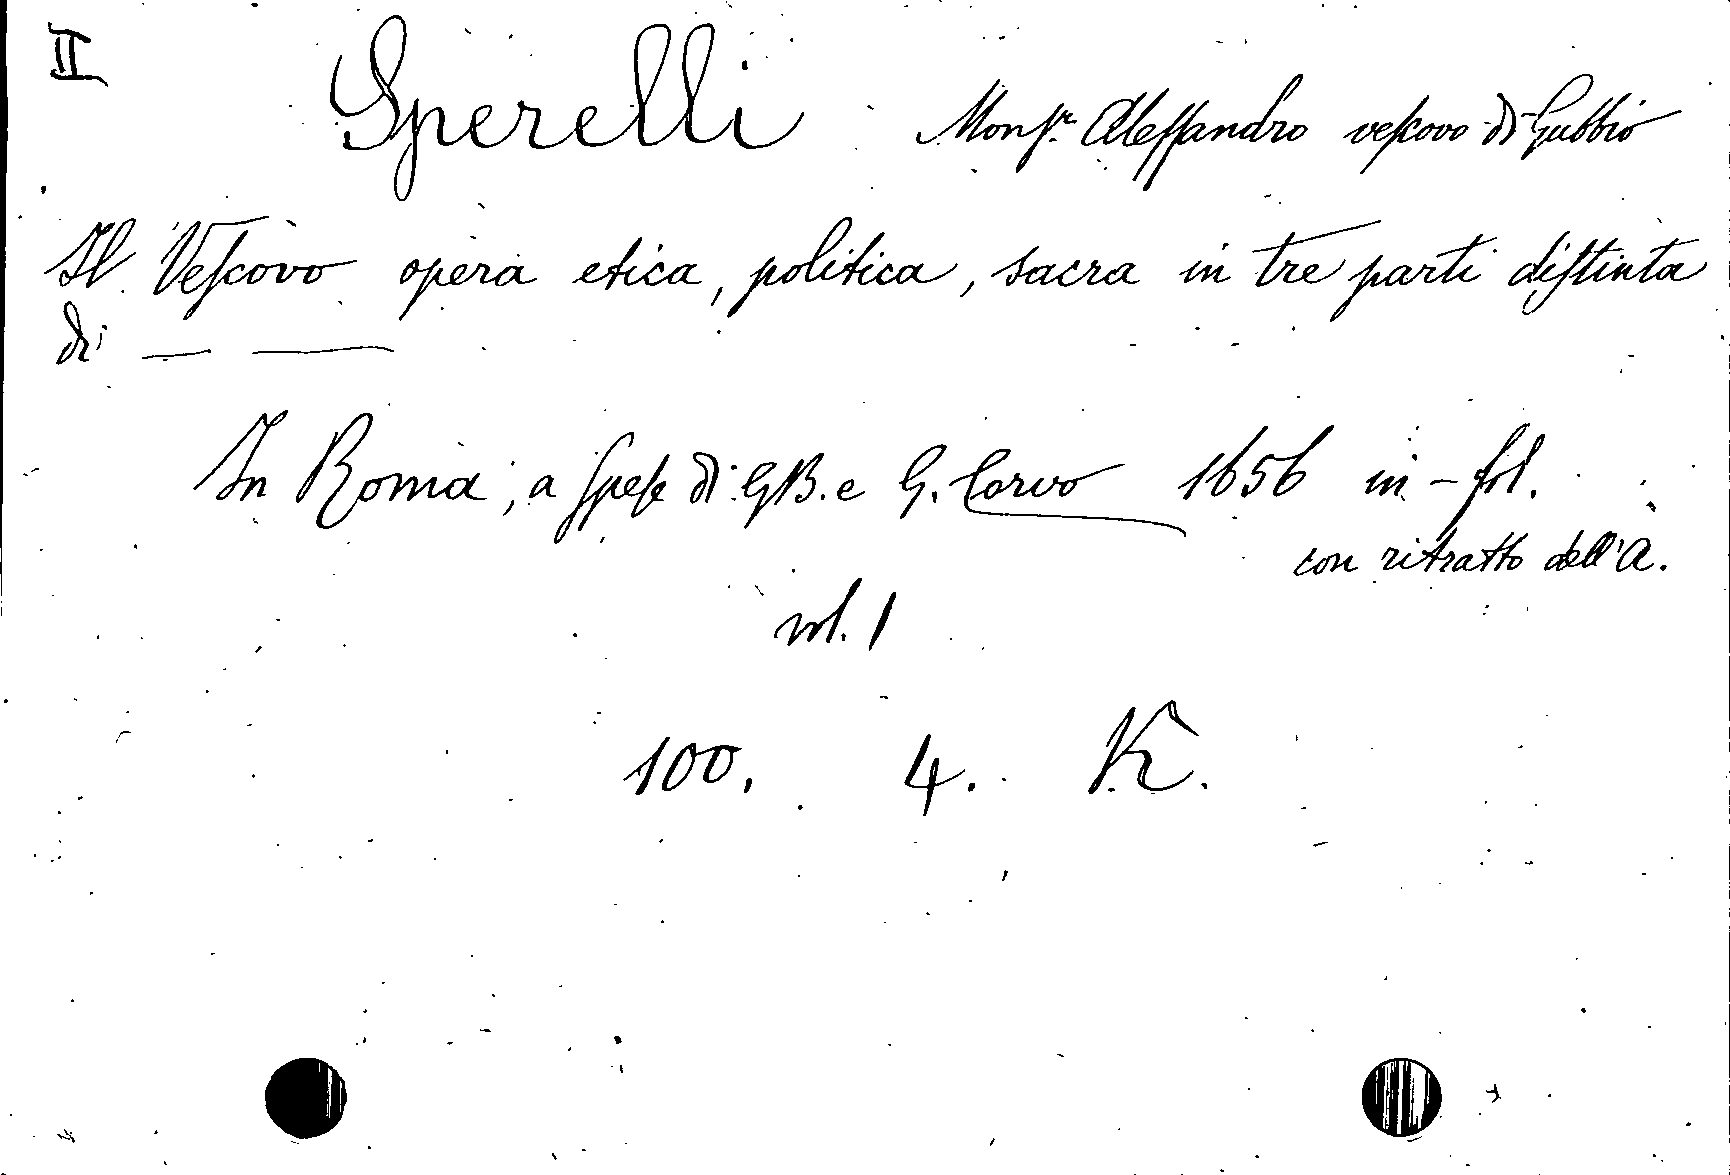 II
Sperelli Monsr. Alessandro vescovo di Gubbio
Il Vescovo opera etica, politica, sacra in tre parti distinta
di — —
In Roma, a spese di GB. e G. Corvo 1656 in-fol.
con ritratto dell'A.
vol. 1
100. 4. K.